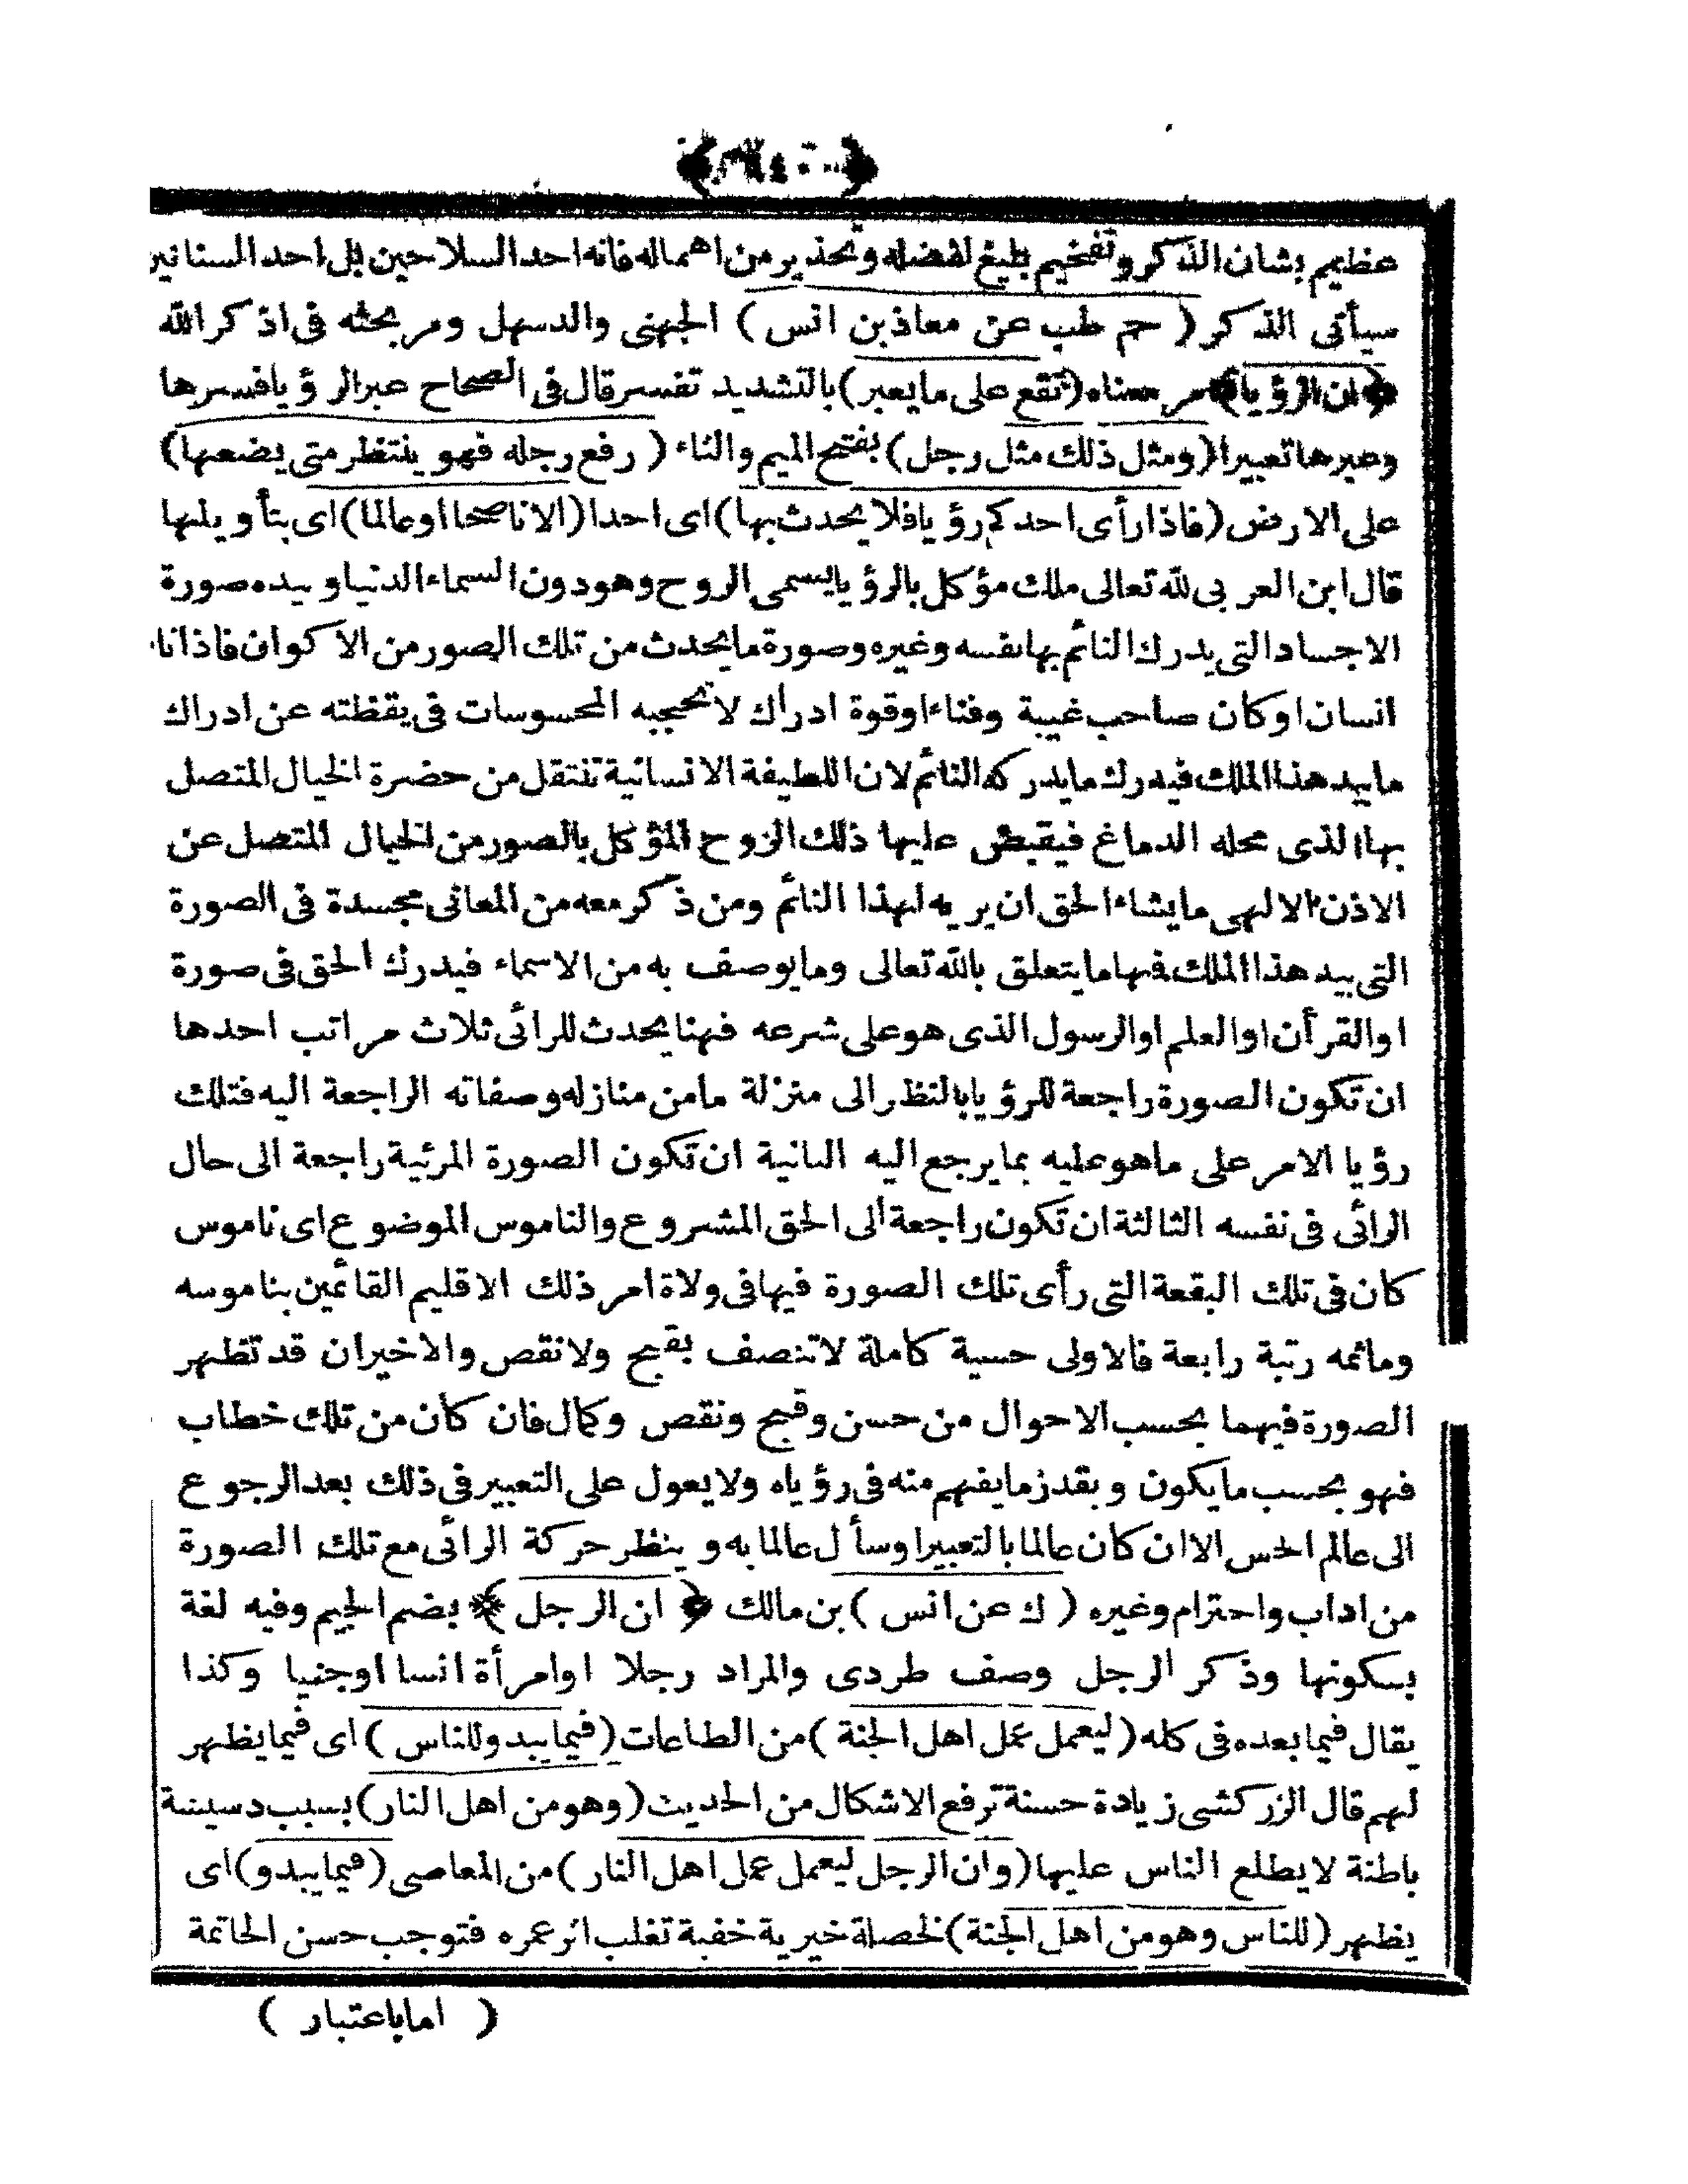 عظيم بشان الذكر وتفخيم بليغ لفضله وتحذير من اهماله فانه احد السلاحين بل احد السنانين
سيأتى الذكر ( حم طب عن معاذ بن انس ) الجهنى والد سهل ومر بحثه فى اذكر الله
﴿ ان الرؤيا ﴾ مر معناه (تقع على ما يعبر) بالتشديد تفسر قال فى الصحاح عبر الرؤيا فسرها
وعبرها تعبيرا (ومثل ذلك مثل رجل) بفتح الميم والثاء ( رفع رجله فهو ينتظر متى يضعها)
على الارض (فاذا رأى احدكم رؤيا فلا يحدث بها) اى احدا (الا ناصحا او عالما) اى بتأويلها
قال ابن العربى لله تعالى ملك مؤكل بالرؤيا يسمى الروح وهو دون السماء الدنيا وبيده صورة
الاجساد التى يدرك النائم بها نفسه وغيره وصورة ما يحدث من تلك الصور من الاكوان فاذا نا
انسان او كان صاحب غيبة وفناء او قوة ادراك لا تحجبه المحسوسات فى يقظته عن ادراك
ما بيد هذا الملك فيدرك ما يدركه النائم لان اللطيفة الانسانية تنتقل من حضرة الخيال المتصل
بها الذى محله الدماغ فيقبض عليها ذلك الروح المؤكل بالصور من الخيال المتصل عن
الاذن الالهى ما يشاء الحق ان يريه لهذا النائم ومن ذكر معه من المعانى مجسدة فى الصورة
التى بيد هذا الملك فيها ما يتعلق بالله تعالى وما يوصف به من الاسماء فيدرك الحق فى صورة
او القرأن او العلم او الرسول الذى هو على شرعه فهنا يحدث للرائى ثلاث مراتب احدها
ان تكون الصورة راجعة للرؤيا بالنظر الى منزلة ما من منازله وصفاته الراجعة اليه فتلك
رؤيا الامر على ما هو عليه بما يرجع اليه الثانية ان تكون الصورة المرئية راجعة الى حال
الرائى فى نفسه الثالثة ان تكون راجعة الى الحق المشروع والناموس الموضوع اى ناموس
كان فى تلك البقعة التى رأى تلك الصورة فيها فى ولاة امر ذلك الاقليم القائمين بناموسه
وما ثمه رتبة رابعة فالاولى حسية كاملة لا تتصف بقبح ولا نقص والاخيران قد تظهر
الصورة فيهما بحسب الاحوال من حسن وقبح ونقص وكمال فان كان من تلك خطاب
فهو بحسب ما يكون وبقدر ما يفهم منه فى رؤياه ولا يعول على التعبير فى ذلك بعد الرجوع
الى عالم الحس الا ان كان عالما بالتعبير او سأل عالما به وينظر حركة الرائى مع تلك الصورة
من اداب واحترام وغيره ( ك عن انس ) بن مالك ﴿ ان الرجل ﴾ بضم الجيم وفيه لغة
بسكونها وذكر الرجل وصف طردى والمراد رجلا او امرأة انسا او جنيا وكذا
يقال فيما بعده فى كله ( ليعمل عمل اهل الجنة ) من الطاعات ( فيما يبدو للناس ) اى فيما يظهر
لهم قال الزركشى زيادة حسنة ترفع الاشكال من الحديث (وهو من اهل النار) بسبب دسيسة
باطنة لا يطلع الناس عليها (وان الرجل ليعمل عمل اهل النار ) من المعاصى (فيما يبدو) اى
يظهر (للناس وهو من اهل الجنة) لخصلة خيرية خفية تغلب اثر عمره فتوجب حسن الخاتمة
( اما باعتبار )